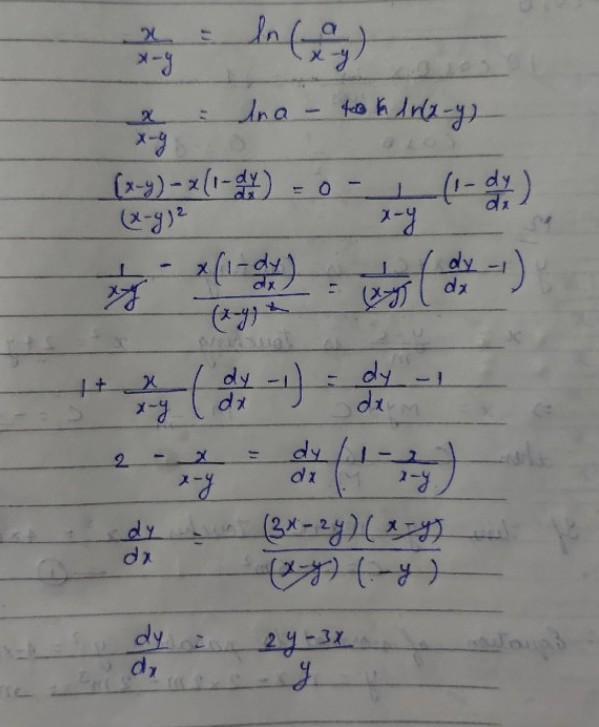 x/(x-y) = ln(a/(x-y))
x/(x-y) = lna - ln(x-y)
((x-y) - x(1-dy/dx))/(x-y)² = 0 - 1/(x-y) (1-dy/dx)
1/(x-y) - x(1-dy/dx)/(x-y)² = 1/(x-y) (dy/dx -1)
1+ x/(x-y) (dy/dx -1) = dy/dx -1
2 - x/(x-y) = dy/dx (1 - x/(x-y))
dy/dx = (3x-2y)(x-y)/((x-y)(-y))
dy/dx = (2y-3x)/y